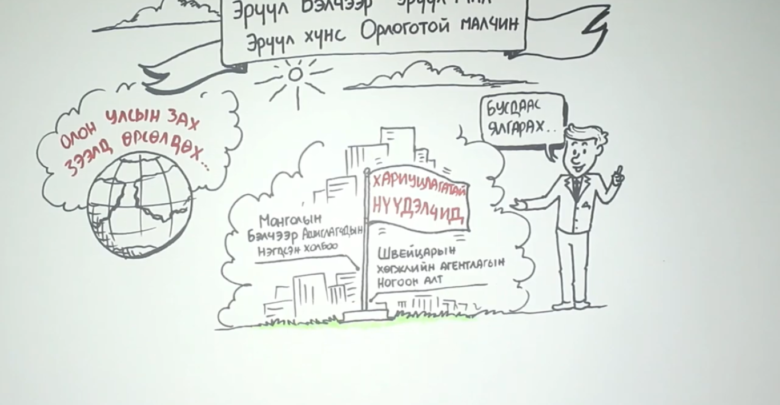 Эрүүл Бэлчээр Эрүүл Мал
Эрүүл хүнс Орлоготой малчин
ОЛОН УЛСЫН ЗАХ
ЗЭЭЛД ӨРСӨЛДӨХ...
БУСДААС
ЯЛГАРАХ...
ХАРИУЦЛАГАТАЙ
НҮҮДЭЛЧИД
Монголын
Бэлчээр Ашиглагчдын
Нэгдсэн холбоо
Швейцарын
хөгжлийн агентлагын
Ногоон алт